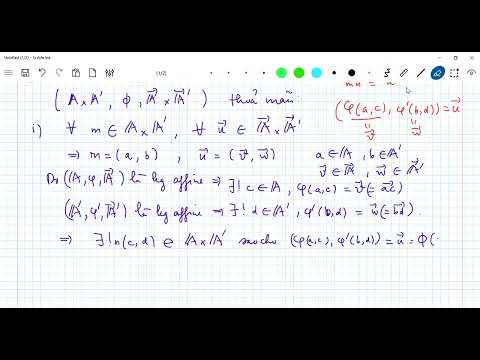 Untitled (1/2) - Scrble Ink
(1/2)
mn⃗ = u⃗
(A×A', ϕ, A⃗×A⃗') thoả mãn:
(φ(a,c), φ'(b,d)) = u⃗
= v⃗ = w⃗
i) ∀ m ∈ A×A', ∀ u⃗ ∈ A⃗×A⃗'
⇒ m = (a, b), u⃗ = (v⃗, w⃗) a ∈ A, b ∈ A'
v⃗ ∈ A⃗, w⃗ ∈ A⃗'
Do (A, φ, A⃗) là kg affine ⇒ ∃! c ∈ A, φ(a,c) = v⃗ (= ac⃗)
(A', φ', A⃗') là kg affine ⇒ ∃! d ∈ A', φ'(b,d) = w⃗ (= bd⃗)
⇒ ∃! n(c,d) ∈ A×A' sao cho (φ(a,c), φ'(b,d)) = u⃗ = ϕ(